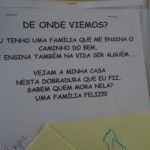 DE ONDE VIEMOS?
U TENHO UMA FAMÍLIA QUE ME ENSINA O
CAMINHO DO BEM,
E ENSINA TAMBÉM NA VIDA SER ALGUÉM.....
VEJAM A MINHA CASA
NESTA DOBRADURA QUE EU FIZ.
SABEM QUEM MORA NELA?
UMA FAMÍLIA FELIZ!!!